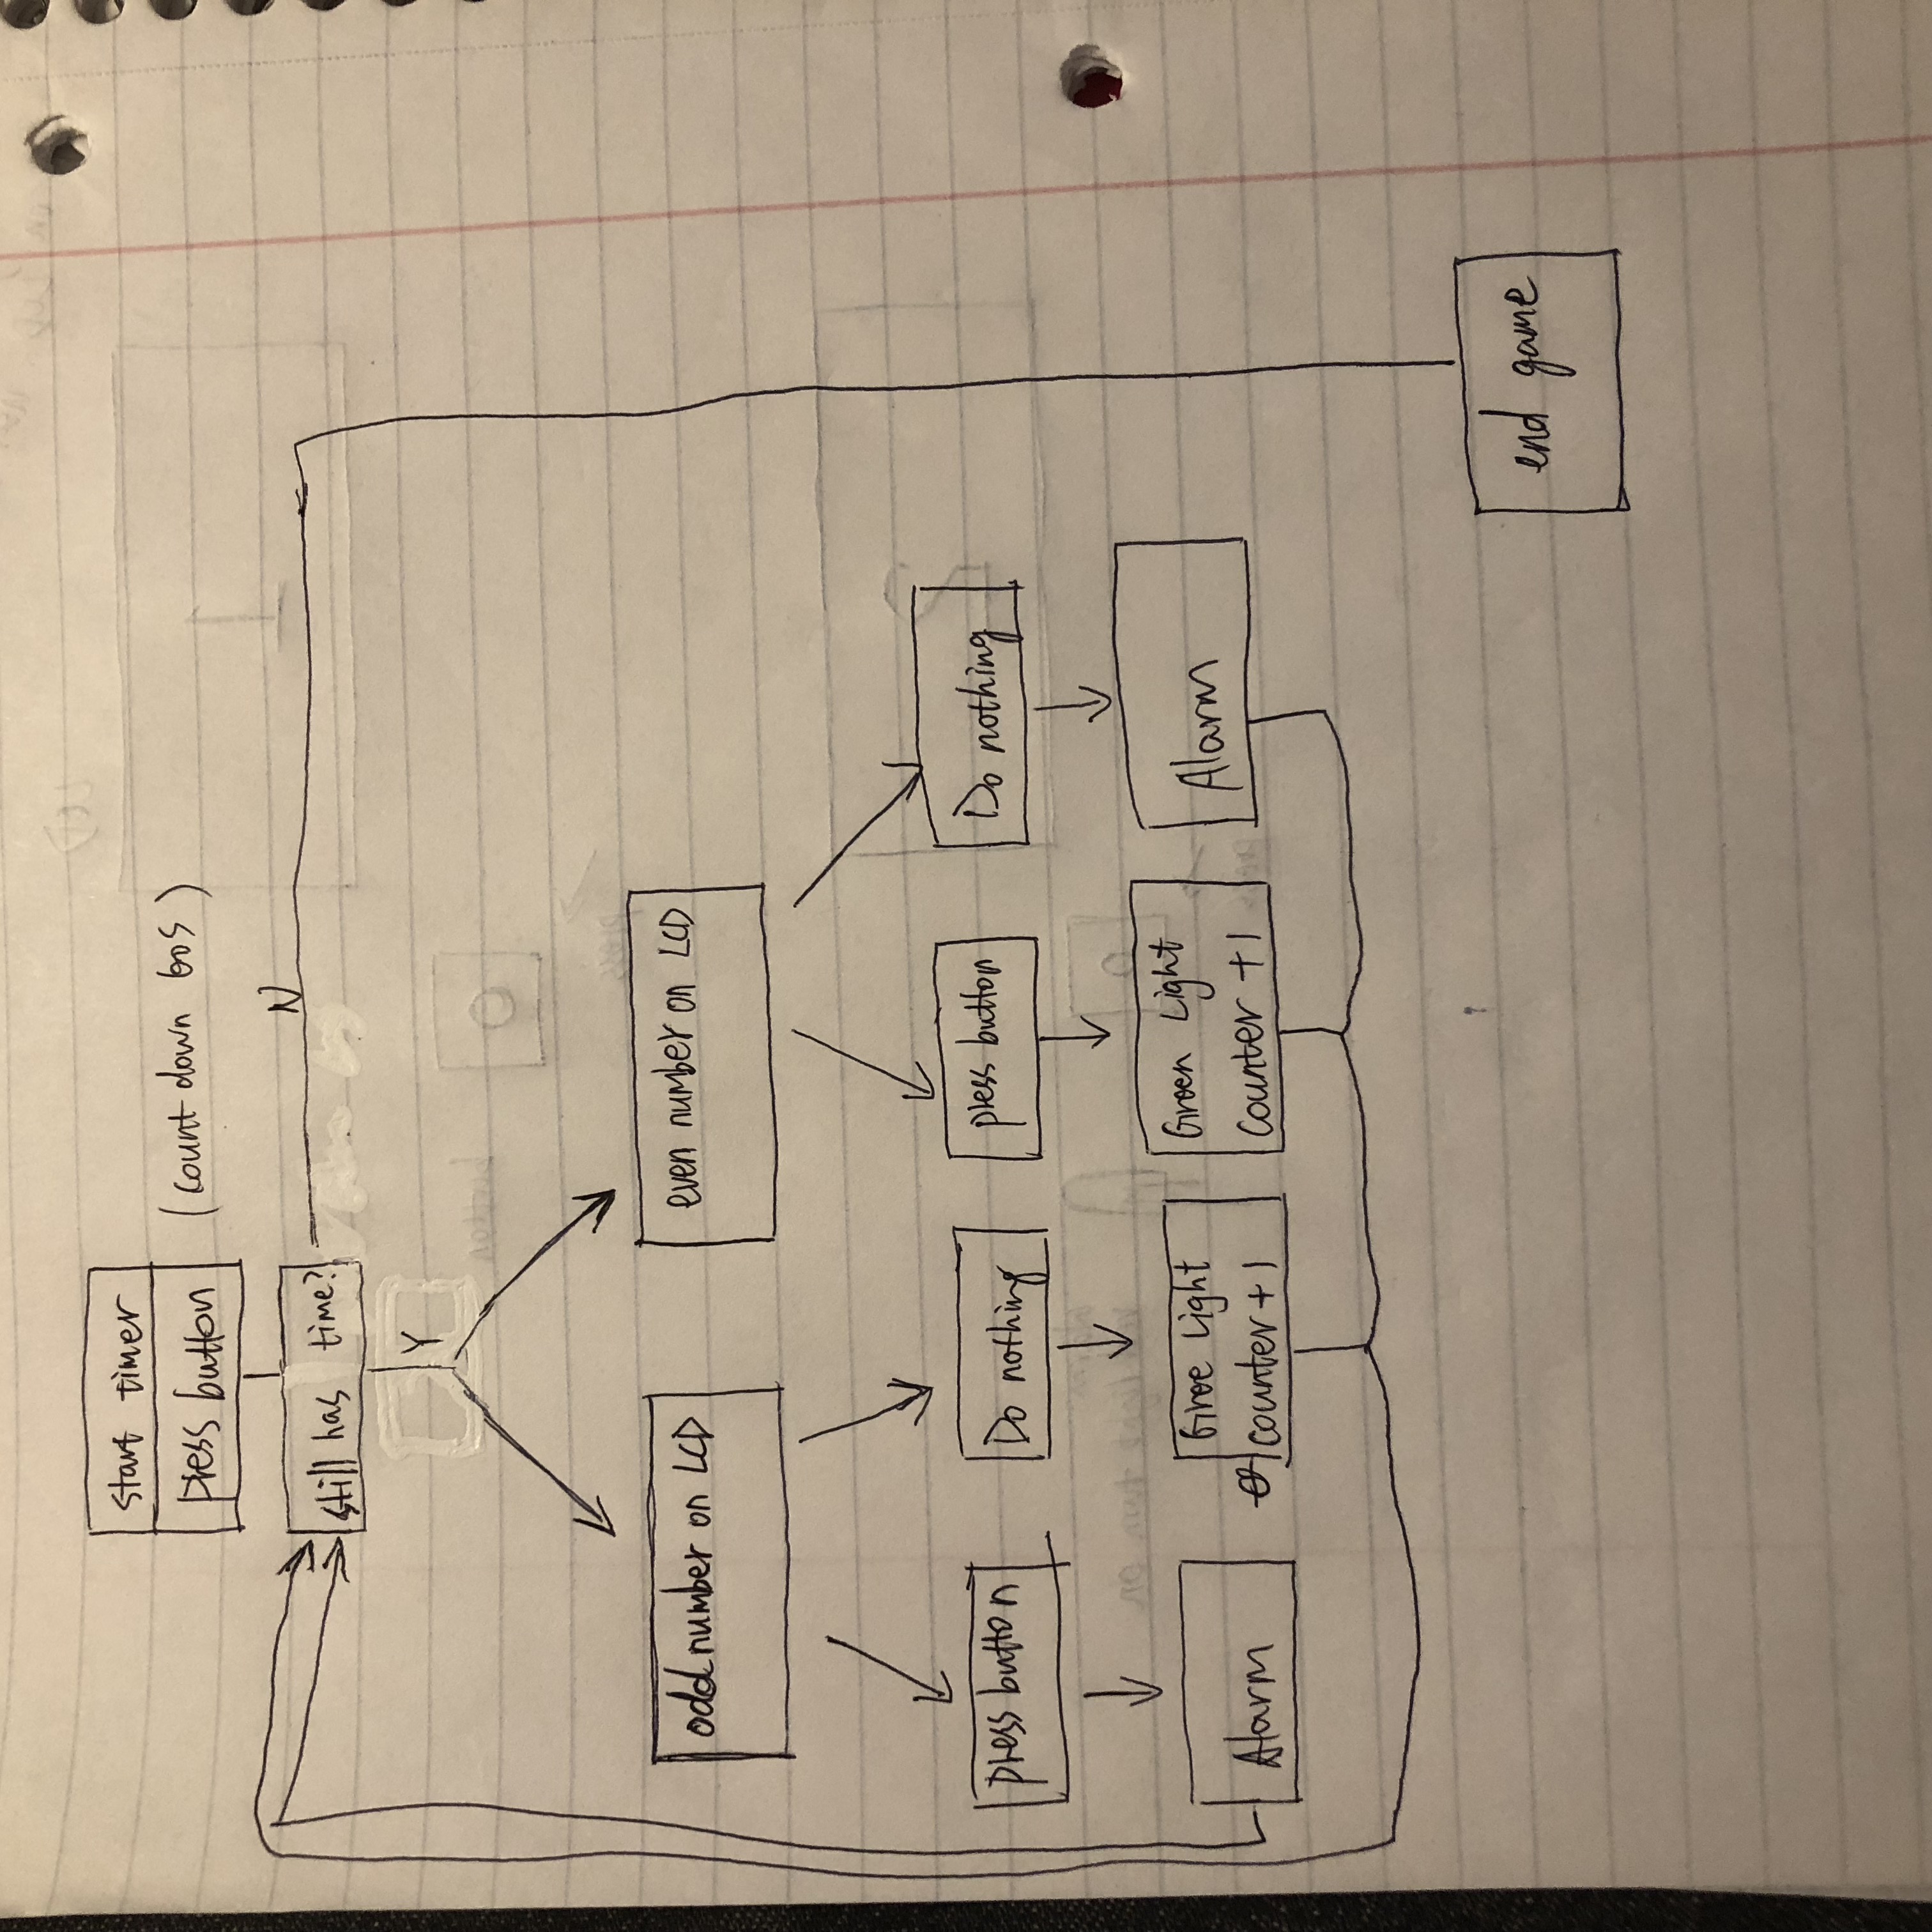 start timer
press button
(count down 60s)
still has time?
N
Y
odd number on LCD
even number on LCD
press button
Do nothing
press button
Do nothing
Alarm
Giree Light
counter + 1
Green Light
counter + 1
Alarm
end game